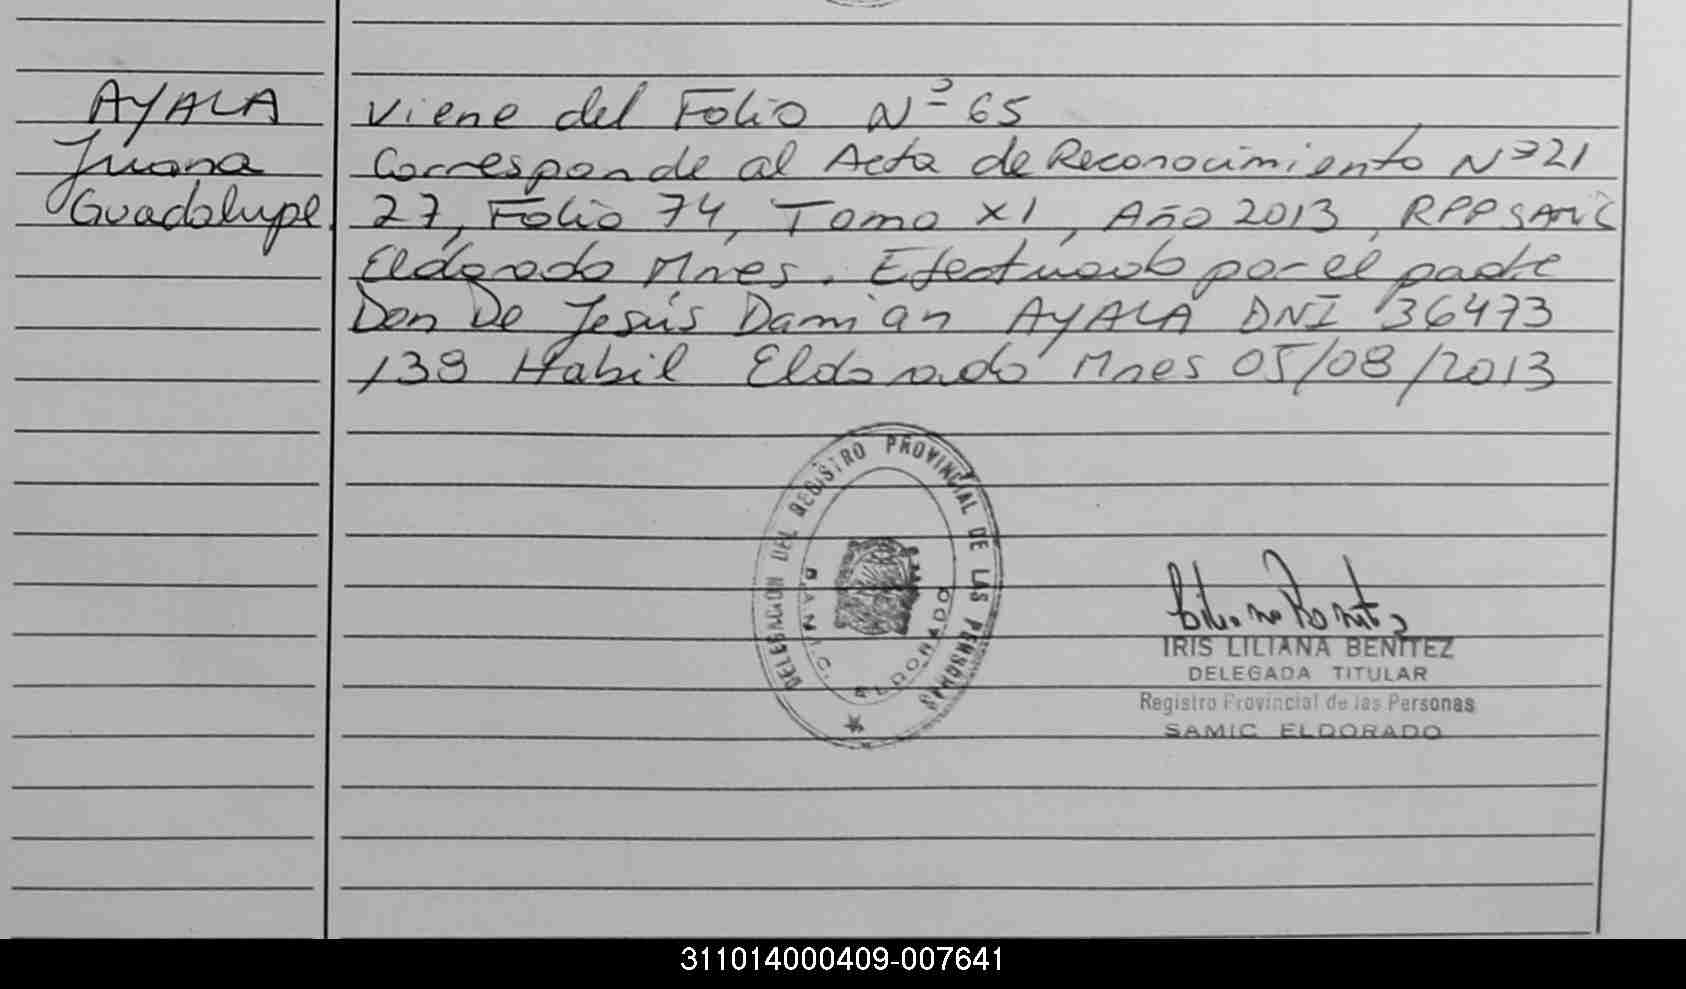 AYALA
Juana
Guadalupe
Viene del Folio Nº 65
Corresponde al Acta de Reconocimiento Nº 21
27, Folio 74, Tomo XI, Año 2013, RPPSAMIC
Eldorado Mnes. Efectuado por el padre
Don De Jesús Damian AYALA DNI 36473
138 Habil Eldorado Mnes 05/08/2013
DELEGACION DEL REGISTRO PROVINCIAL DE LAS PERSONAS
S.A.M.I.C. ELDORADO
IRIS LILIANA BENITEZ
DELEGADA TITULAR
Registro Provincial de las Personas
SAMIC ELDORADO
311014000409-007641